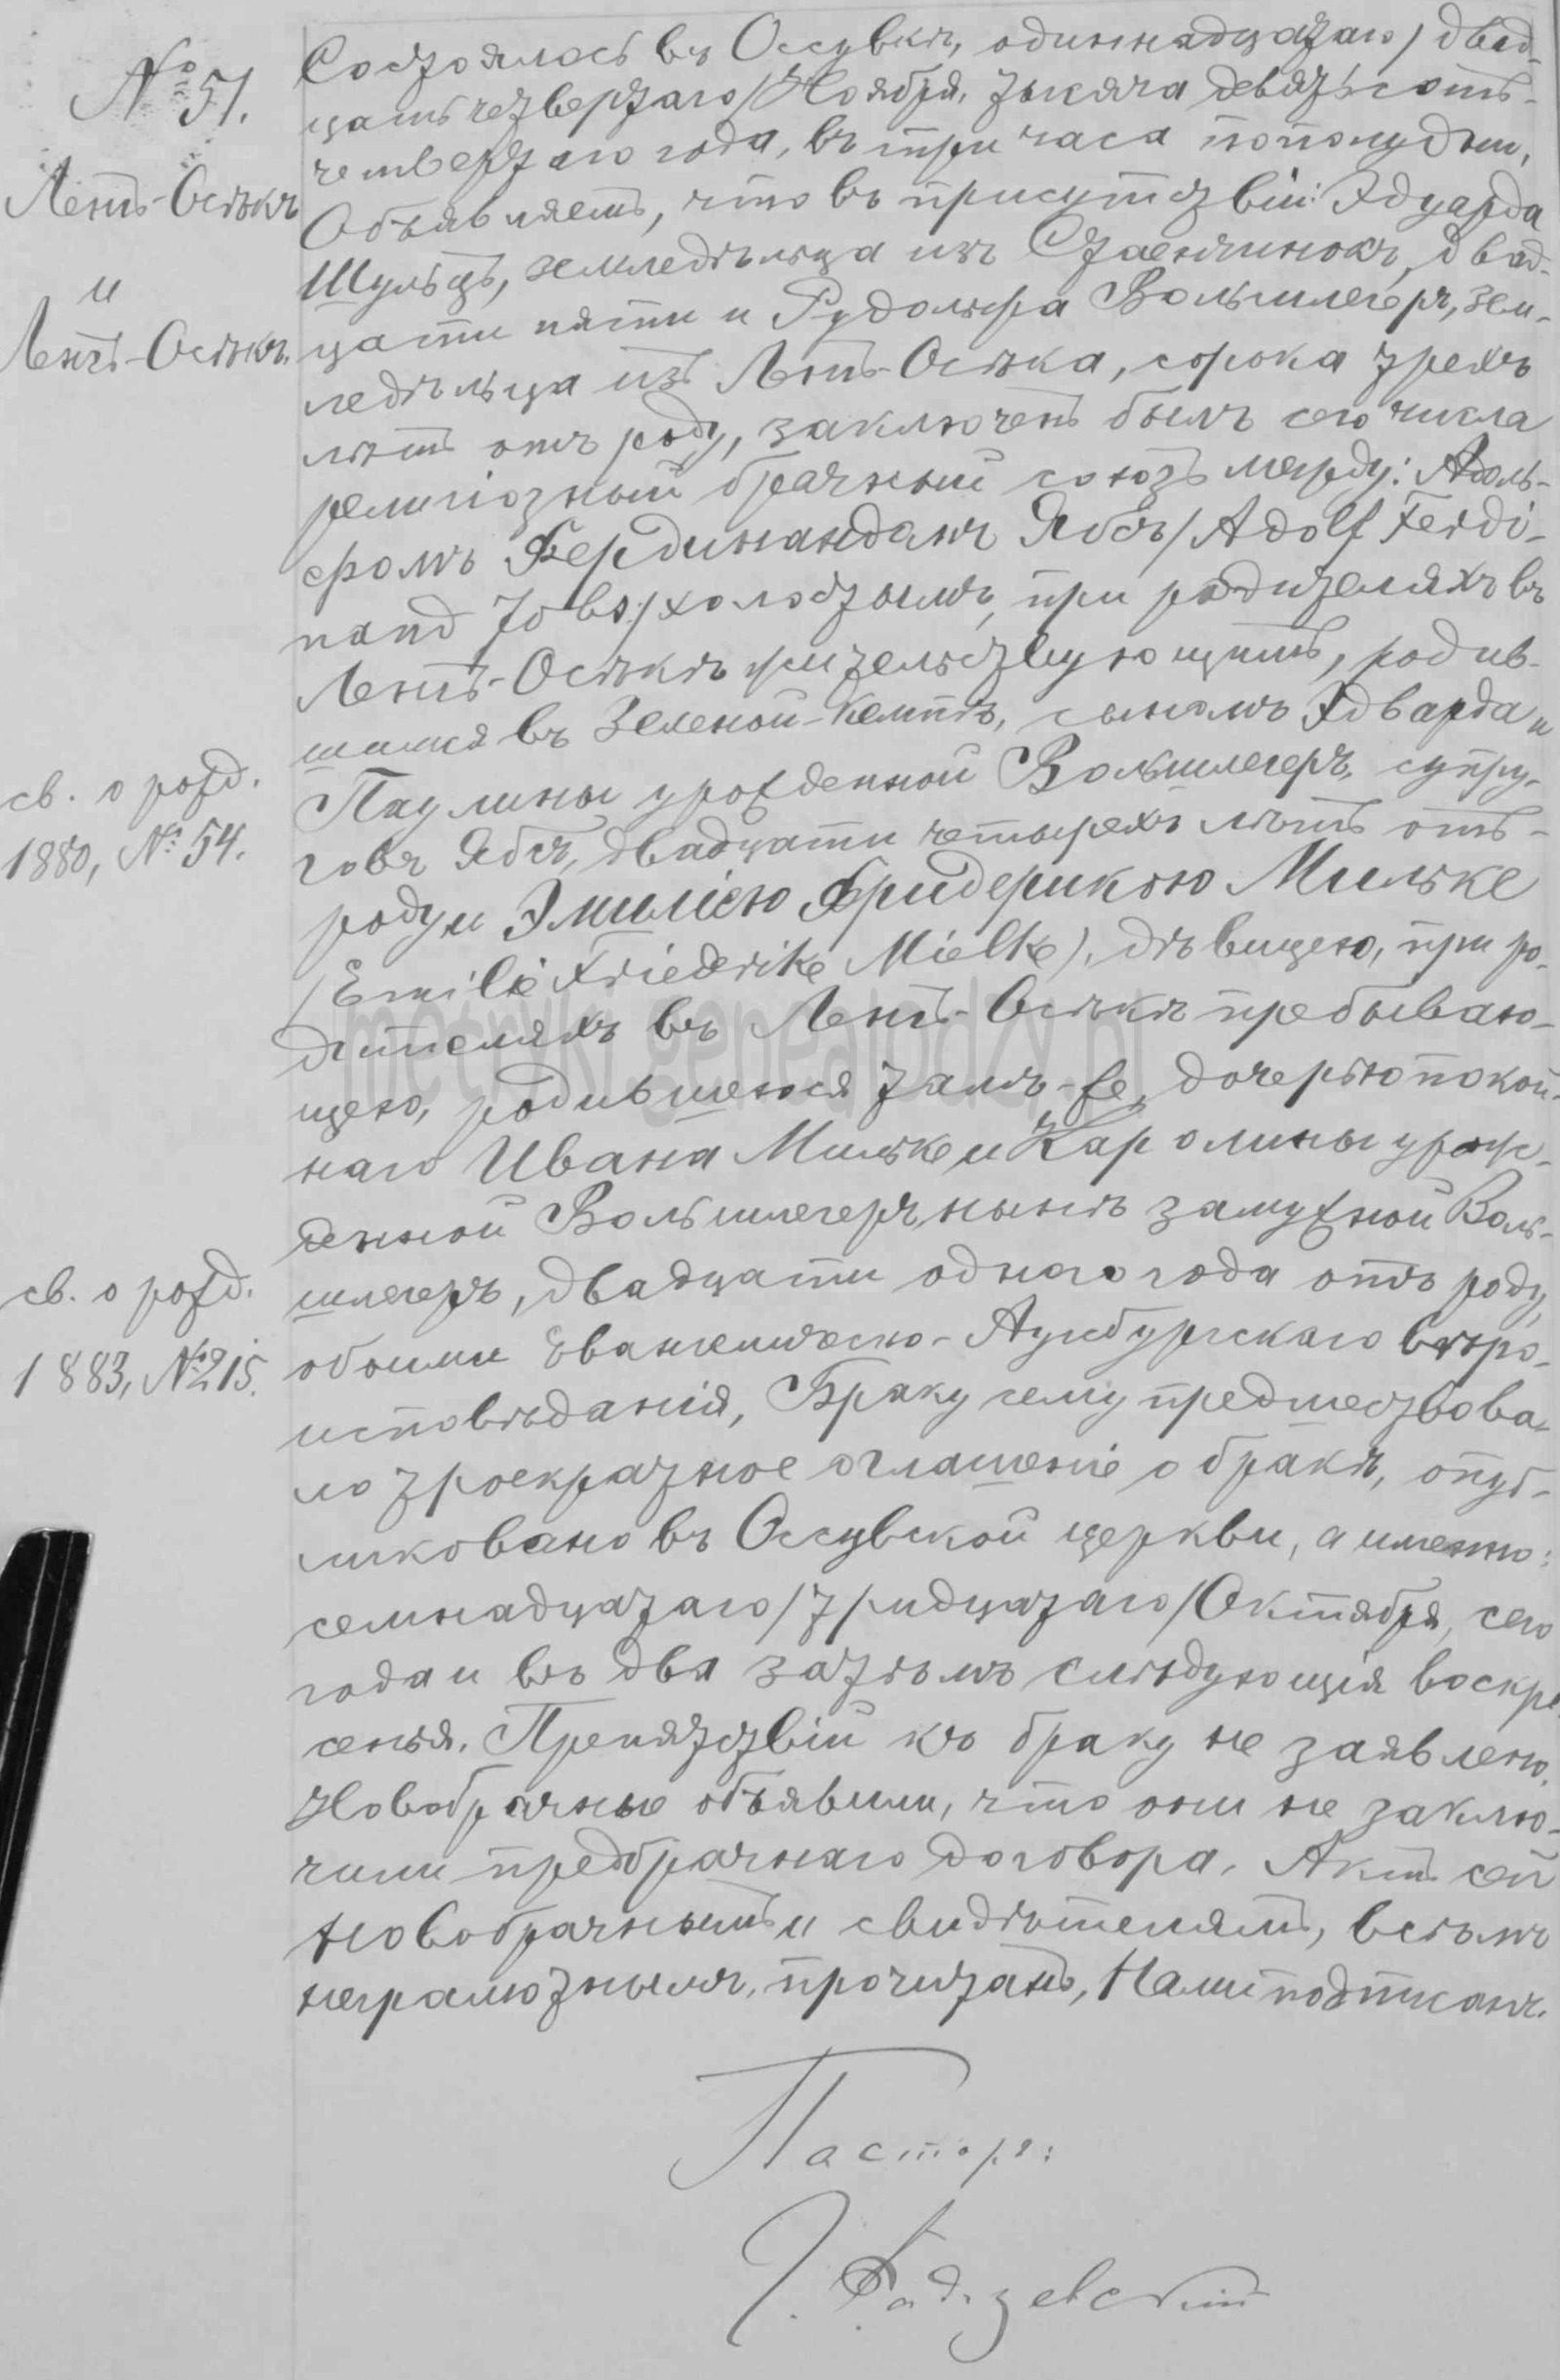 № 51.
Ленгъ-Осѣкъ
и
Ленгъ-Осѣкъ.
Состоялось въ Оссувкѣ, одиннадцатаго/двад-
цать четвертаго/Ноября, тысяча девятьсотъ-
четвертаго года, въ три часа пополудни,
Объявляемъ, что въ присутствіи: Эдуарда
Шульцъ, земледѣльца изъ Стаенчинокъ, двад-
цати пяти и Рудольфа Вольшлегеръ, зем-
ледѣльца изъ Ленгъ-Осѣка, сорока трехъ
лѣтъ отъ роду, заключенъ былъ сего числа
религіозный брачный союзъ между: Адоль-
фомъ Фердинандомъ Ябсъ/Adolf Ferdi-
nand Jobs/холостымъ, при родителяхъ въ
Ленгъ-Осѣкѣ жительствующимъ, родив-
шимся въ Зеленой-Кемпѣ, сыномъ Эдварда и
Паулины урожденной Вольшлегеръ, супру-
говъ Ябсъ, двадцати четырехъ лѣтъ отъ-
роду и Эмиліею Фридерикою Мильке
/Emilie Friederike Mielke), дѣвицею, при ро-
дителяхъ въ Ленгъ-Осѣкѣ пребываю-
щею, родившеюся тамъ-же, дочерью покой-
наго Ивана Мильке и Каролины урож-
денной Вольшлегеръ, нынѣ замужной Воль-
шлегеръ, двадцати одного года отъ роду,
обоими Евангелическо-Аугсбургскаго вѣро-
исповѣданія, Браку сему предшествова-
ло троекратное оглашеніе о бракѣ, опуб-
ликовано въ Оссувской церкви, а именно:
семнадцатаго/тридцатаго/Октября, сего
года и въ два затѣмъ слѣдующія воскре-
сенья. Препятствій къ браку не заявлено.
Новобрачные объявили, что они не заклю-
чили предбрачнаго договора. Актъ сей
Новобрачнымъ и свидѣтелямъ, всѣмъ
неграмотнымъ, прочитанъ, Нами подписанъ.
св. о рожд.
1880, № 54.
св. о рожд.
1883, № 215.
Пасторъ: